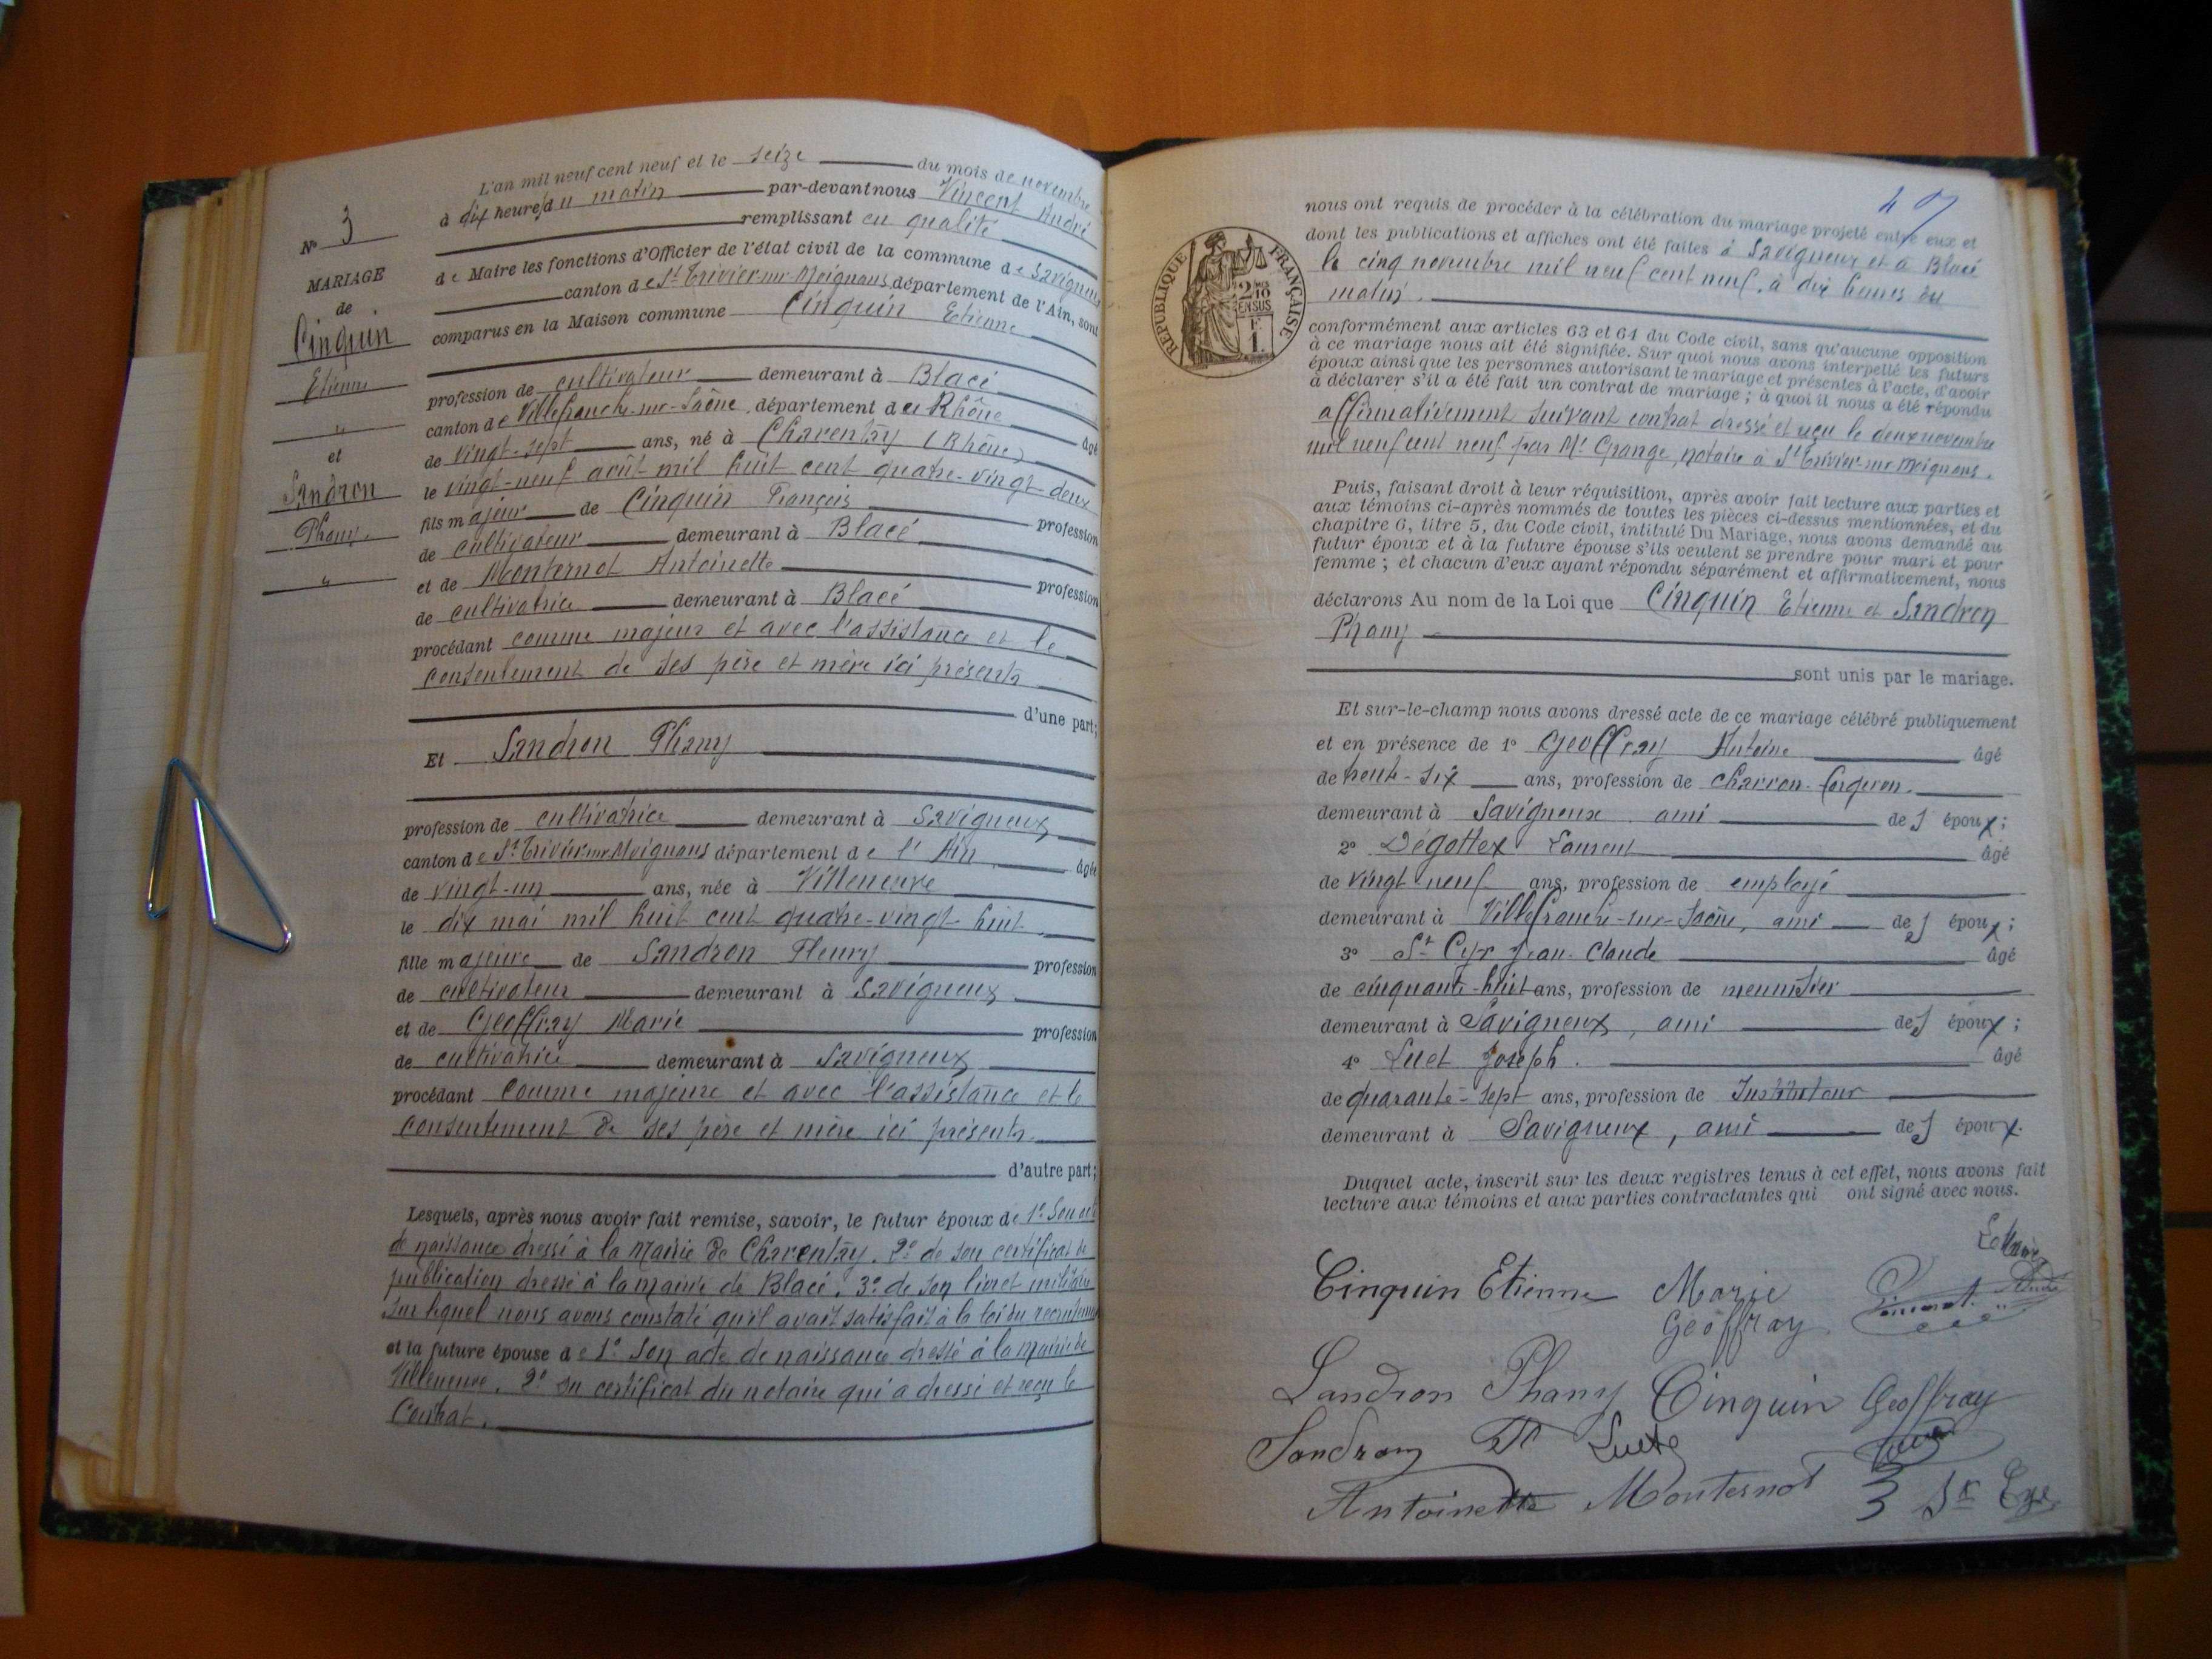 N° 3
MARIAGE
de
Cinquin
Etienne
"
et
Sandron
Phany.
"
L'an mil neuf cent neuf et le seize du mois de novembre
à dix heures du matin par-devant nous Vincent André
remplissant en qualité
de Maire les fonctions d'Officier de l'état civil de la commune de Savigneux
canton de St Trivier-sur-Moignans, département de l'Ain, sont
comparus en la Maison commune Cinquin Etienne
profession de cultivateur demeurant à Blacé
canton de Villefranche-sur-Saône, département du Rhône âgé
de vingt-sept ans, né à Charentay (Rhône)
le vingt-neuf août mil huit cent quatre-vingt-deux
fils majeur de Cinquin François profession
de cultivateur demeurant à Blacé
et de Monternot Antoinette profession
de cultivatrice demeurant à Blacé
procédant comme majeur et avec l'assistance et le
consentement de ses père et mère ici présents
d'une part;
Et Sandron Phany
profession de cultivatrice demeurant à Savigneux
canton de St Trivier-sur-Moignans département de l'Ain âgée
de vingt-un ans, née à Villeneuve
le dix mai mil huit cent quatre-vingt-huit
fille majeure de Sandron Fleury profession
de cultivateur demeurant à Savigneux
et de Geoffray Marie profession
de cultivatrice demeurant à Savigneux
procédant comme majeure et avec l'assistance et le
consentement de ses père et mère ici présents.
d'autre part;
Lesquels, après nous avoir fait remise, savoir, le futur époux de 1° Son acte
de naissance dressé à la mairie de Charentay. 2° de son certificat de
publication dressé à la mairie de Blacé. 3° de son livret militaire
sur lequel nous avons constaté qu'il avait satisfait à la loi du recrutement
et la future épouse de 1° Son acte de naissance dressé à la mairie de
Villeneuve. 2° un certificat du notaire qui a dressé et reçu le
Contrat.
RÉPUBLIQUE FRANÇAISE
2/10
EN SUS
1 F.
nous ont requis de procéder à la célébration du mariage projeté entre eux et
dont les publications et affiches ont été faites à Savigneux et à Blacé
le cinq novembre mil neuf cent neuf, à dix heures du
matin.
conformément aux articles 63 et 64 du Code civil, sans qu'aucune opposition
à ce mariage nous ait été signifiée. Sur quoi nous avons interpellé les futurs
époux ainsi que les personnes autorisant le mariage et présentes à l'acte, d'avoir
à déclarer s'il a été fait un contrat de mariage ; à quoi il nous a été répondu
affirmativement suivant contrat dressé et reçu le deux novembre
mil neuf cent neuf par Mr Grange, notaire à St Trivier-sur-Moignans.
Puis, faisant droit à leur réquisition, après avoir fait lecture aux parties et
aux témoins ci-après nommés de toutes les pièces ci-dessus mentionnées, et du
chapitre 6, titre 5, du Code civil, intitulé Du Mariage, nous avons demandé au
futur époux et à la future épouse s'ils veulent se prendre pour mari et pour
femme ; et chacun d'eux ayant répondu séparément et affirmativement, nous
déclarons Au nom de la Loi que Cinquin Etienne et Sandron
Phany
sont unis par le mariage.
Et sur-le-champ nous avons dressé acte de ce mariage célébré publiquement
et en présence de 1° Geoffray Antoine âgé
de trente-six ans, profession de charron-forgeron.
demeurant à Savigneux. ami des époux;
2° Dégottex Laurent âgé
de vingt-neuf ans, profession de employé
demeurant à Villefranche-sur-Saône, ami des époux;
3° St Cyr Jean-Claude âgé
de cinquante-huit ans, profession de meunier
demeurant à Savigneux, ami des époux;
4° Luet Joseph. âgé
de quarante-sept ans, profession de Instituteur
demeurant à Savigneux, ami des époux.
Duquel acte, inscrit sur les deux registres tenus à cet effet, nous avons fait
lecture aux témoins et aux parties contractantes qui ont signé avec nous.
Le Maire
Cinquin Etienne Marie Geoffray Vincent André
Sandron Phany Cinquin Geoffray
Sandron Luet
Antoinette Monternot St Cyr